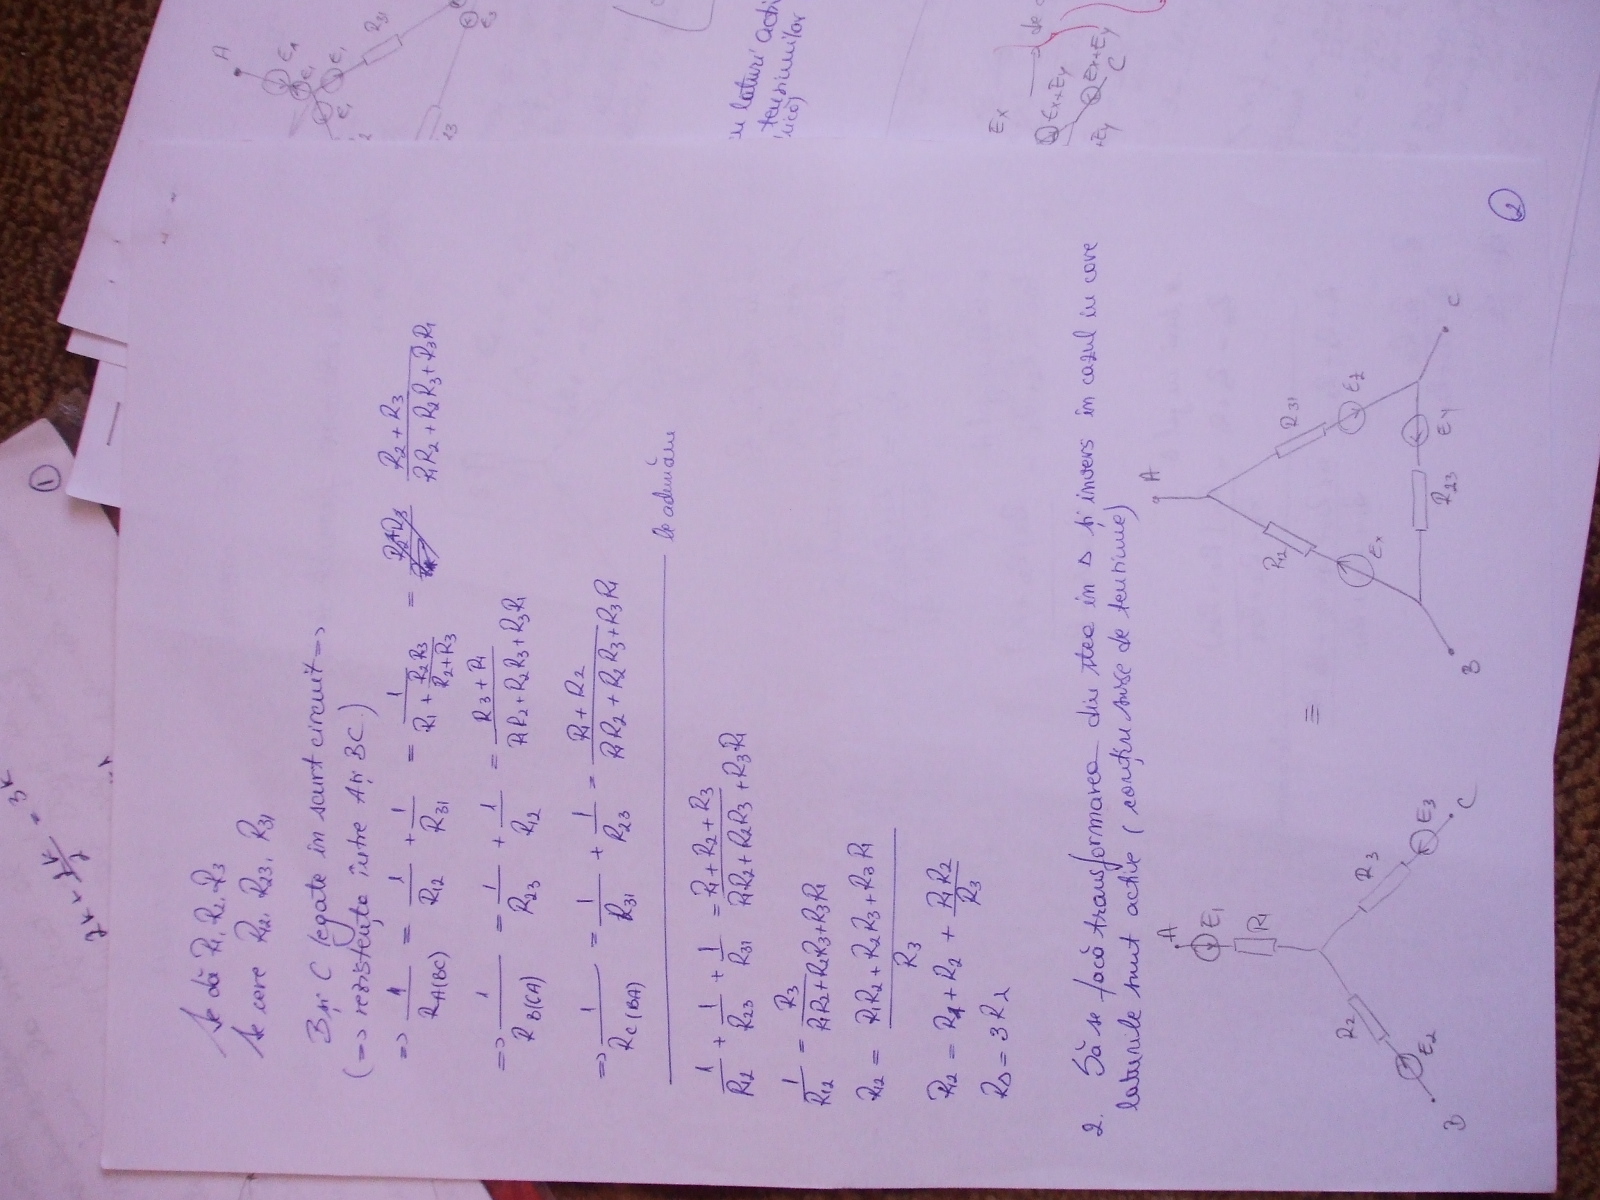 2k + 2k/2 = 3k
1
Se dă R1, R2, R3
Se cere R12, R23, R31
B și C legate în scurt circuit =>
(=> rezistența între A și BC)
=> 1/R A(BC) = 1/R12 + 1/R31 = 1/(R1 + R2R3/(R2+R3)) = (R2 + R3)/(R1R2 + R2R3 + R3R1)
=> 1/R B(CA) = 1/R23 + 1/R12 = (R3 + R1)/(R1R2 + R2R3 + R3R1)
=> 1/R C(BA) = 1/R31 + 1/R23 = (R1 + R2)/(R1R2 + R2R3 + R3R1)
le adunăm
1/R12 + 1/R23 + 1/R31 = (R1 + R2 + R3)/(R1R2 + R2R3 + R3R1)
1/R12 = R3/(R1R2 + R2R3 + R3R1)
R12 = (R1R2 + R2R3 + R3R1)/R3
R12 = R1 + R2 + R1R2/R3
RΔ = 3Rλ
2. Să se facă transformarea din stea în Δ și invers în cazul in care
laturile sunt active (conțin surse de tensiune)
A
E1
R1
R2
R3
E2
E3
B
C
≡
A
R12
R31
Ex
Ez
R23
Ey
B
C
2
A
E1
E1
E1
R31
23
E3
cu laturi acti
tensiunilor
Ex
de
Ex+Ey
Ex+Ey
+Ey
C